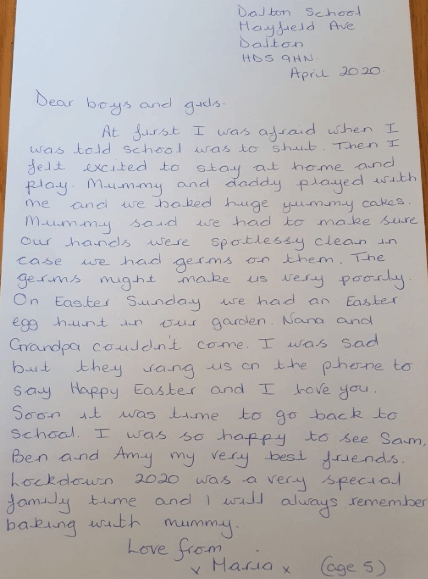 Dalton School
Mayfield Ave
Dalton
HD5 9HN
April 2020
Dear boys and girls.
At first I was afraid when I
was told school was to shut. Then I
felt excited to stay at home and
play. Mummy and daddy played with
me and we baked huge yummy cakes.
Mummy said we had to make sure
our hands were spotlessy clean in
case we had germs on them. The
germs might make us very poorly.
On Easter Sunday we had an Easter
egg hunt in our garden. Nana and
Grandpa couldn't come. I was sad
but they rang us on the phone to
say Happy Easter and I love you.
Soon it was time to go back to
School. I was so happy to see Sam,
Ben and Amy my very best friends.
Lockdown 2020 was a very special
family time and I will always remember
baking with mummy.
Love from
x Maria x (age 5)